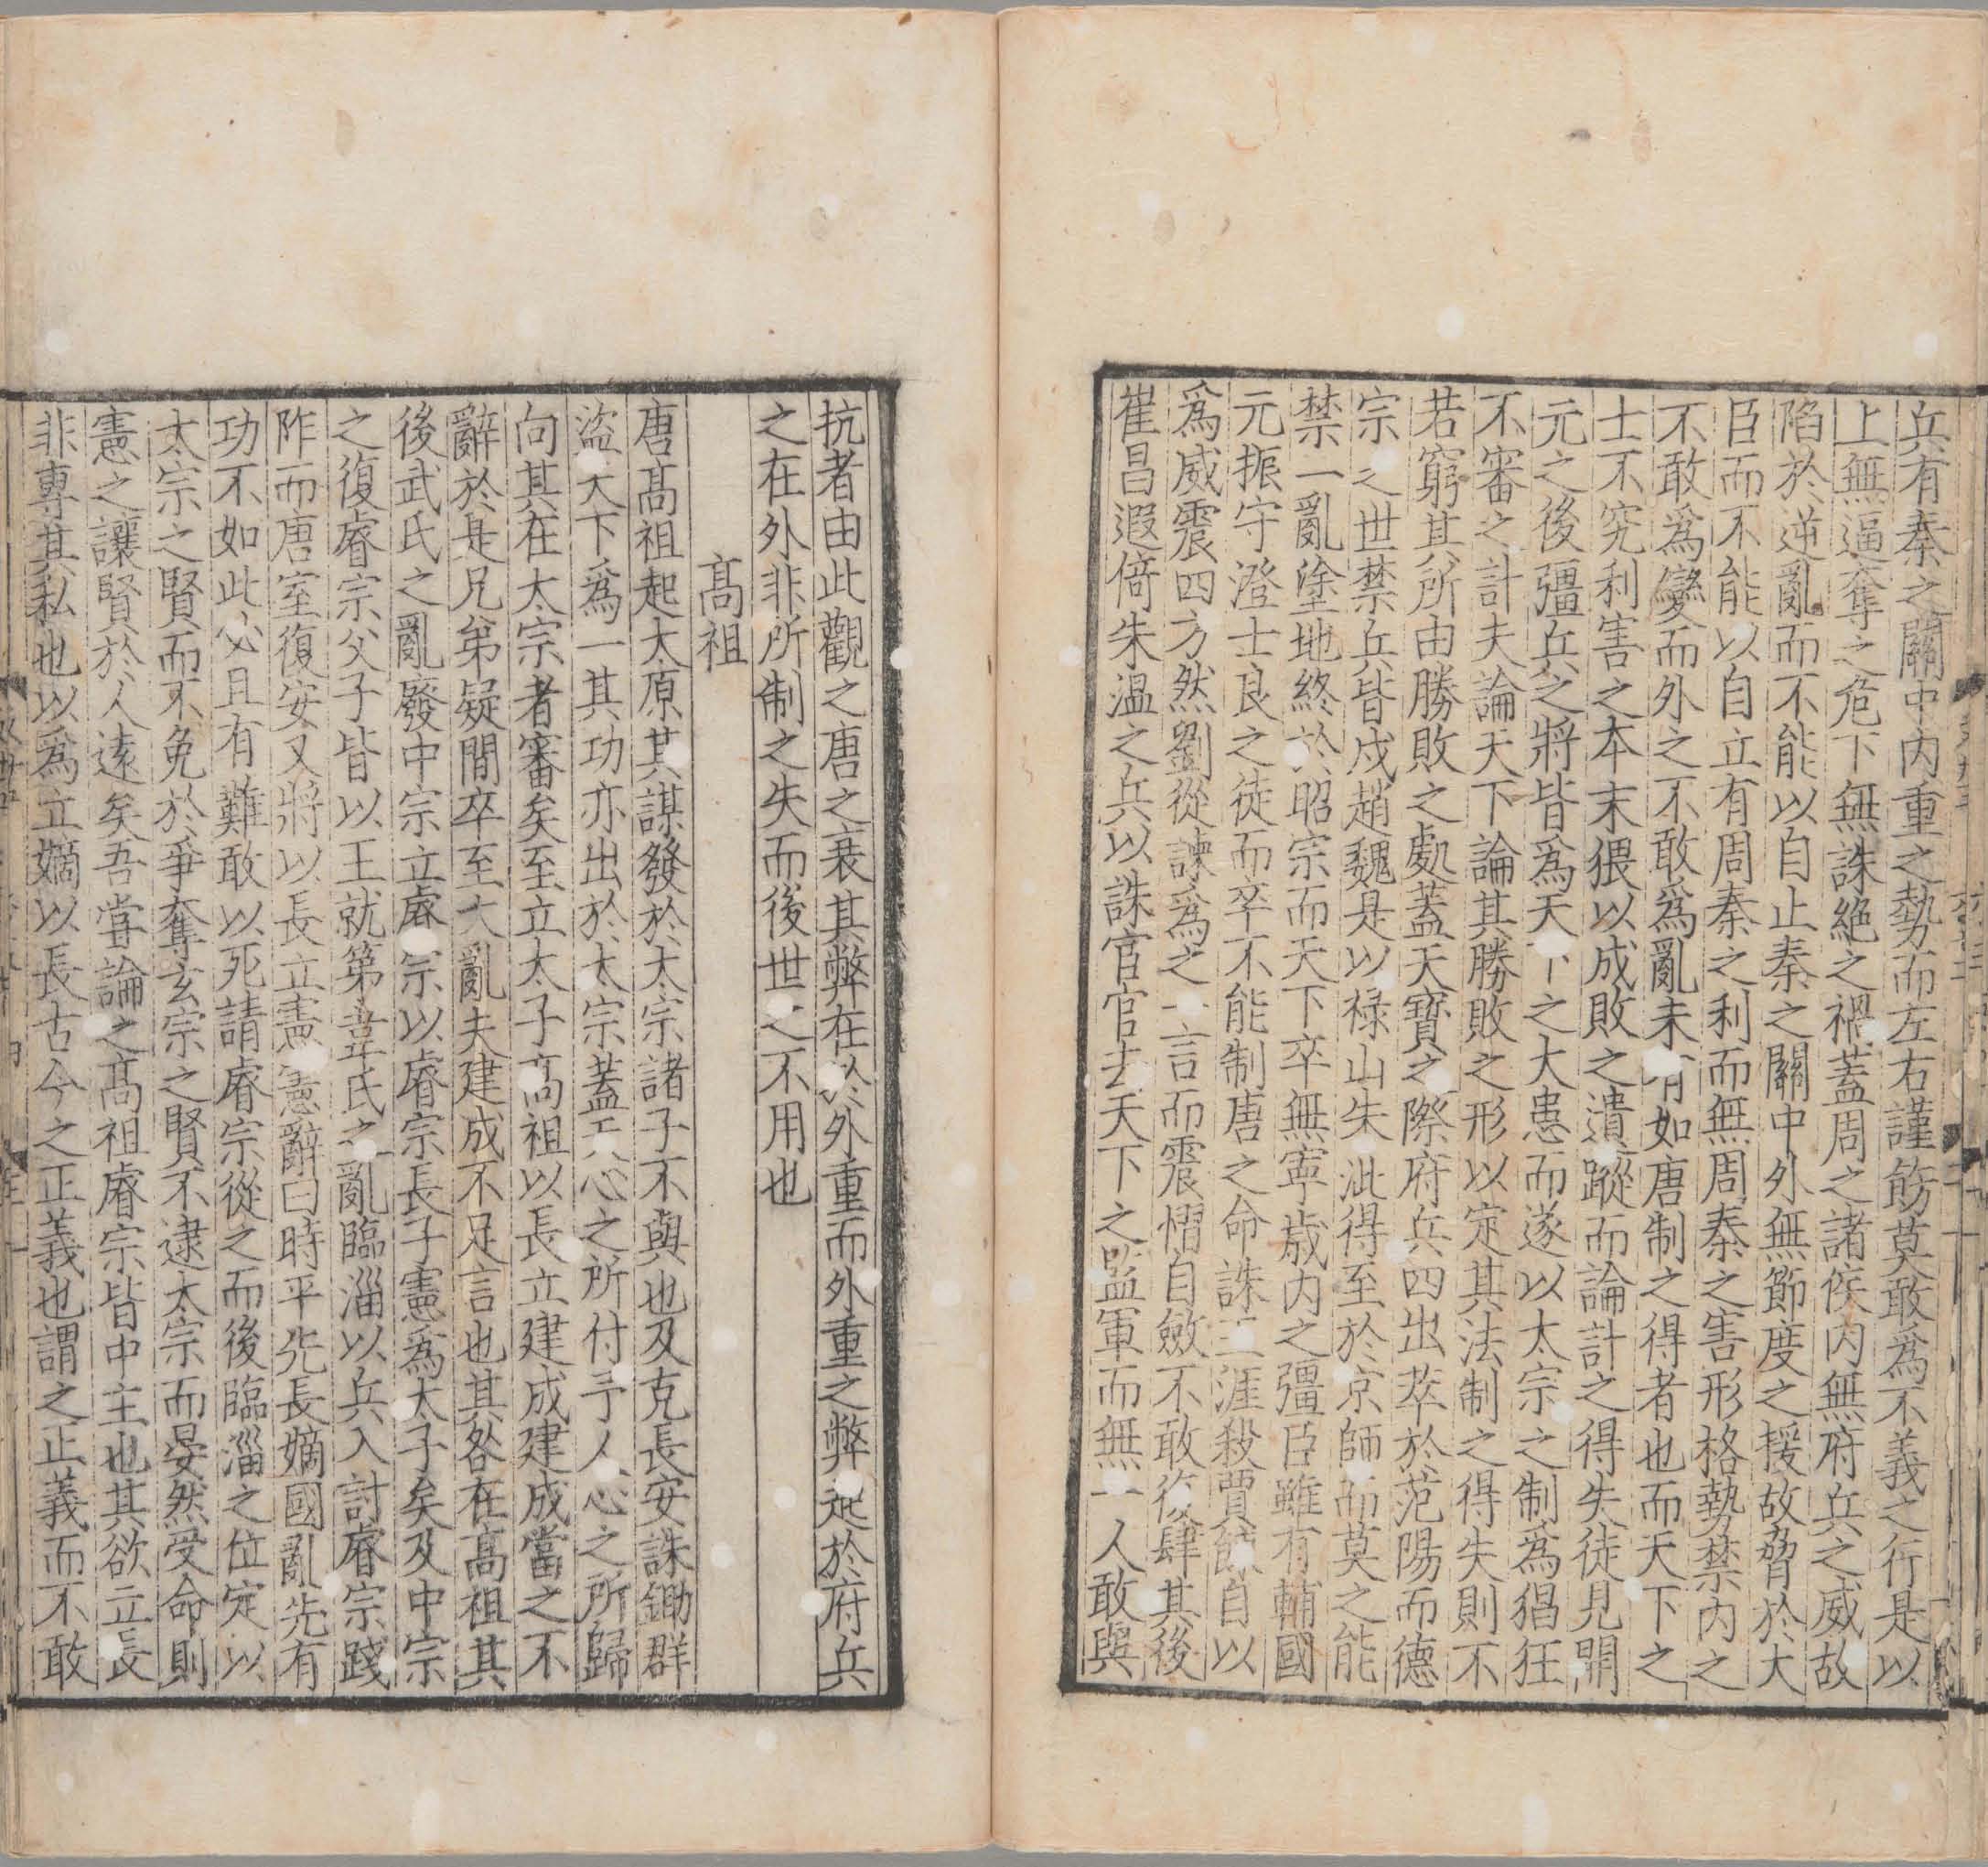 兵有秦之關中内重之勢而左右謹飭莫敢爲不義之行是以
上無逼奪之危下無誅絶之禍蓋周之諸侯内無府兵之威故
陷於逆亂而不能以自止秦之關中外無節度之援故脅於大
臣而不能以自立有周秦之利而無周秦之害形格勢禁内之
不敢爲變而外之不敢爲亂未有如唐制之得者也而天下之
士不究利害之本末猥以成敗之遺蹤而論計之得失徒見開
元之後彊兵之將皆爲天下之大患而遂以太宗之制爲猖狂
不審之計夫論天下論其勝敗之形以定其法制之得失則不
若窮其所由勝敗之處蓋天寶之際府兵四出萃於范陽而德
宗之世禁兵皆戍趙魏是以禄山朱泚得至於京師而莫之能
禁一亂塗地終於昭宗而天下卒無寧歳内之彊臣雖有輔國
元振守澄士良之徒而卒不能制唐之命誅王涯殺賈餗自以
爲威震四方然劉從諫爲之一言而震慴自斂不敢復肆其後
崔昌遐倚朱温之兵以誅宦官去天下之監軍而無一人敢與
抗者由此觀之唐之衰其弊在於外重而外重之弊起於府兵
之在外非所制之失而後世之不用也
髙祖
唐髙祖起太原其謀發於太宗諸子不與也及克長安誅鋤群
盜天下爲一其功亦出於太宗蓋天心之所付予人心之所歸
向其在太宗者審矣至立太子髙祖以長立建成建成當之不
辭於是兄弟疑間卒至大亂夫建成不足言也其咎在髙祖其
後武氏之亂廢中宗立睿宗以睿宗長子憲爲太子矣及中宗
之復睿宗父子皆以王就第韋氏之亂臨淄以兵入討睿宗踐
阼而唐室復安又將以長立憲憲辭曰時平先長嫡國亂先有
功不如此必且有難敢以死請睿宗從之而後臨淄之位定以
太宗之賢而不免於爭奪玄宗之賢不逮太宗而晏然受命則
憲之讓賢於人遠矣吾嘗論之髙祖睿宗皆中主也其欲立長
非專其私也以爲立嫡以長古今之正義也謂之正義而不敢